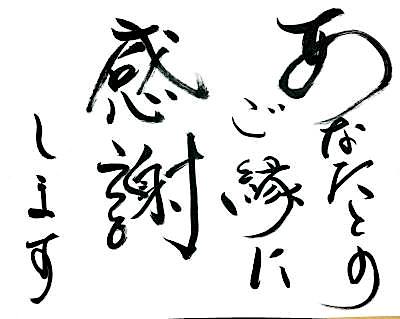 あなたとの
ご縁に
感謝
します